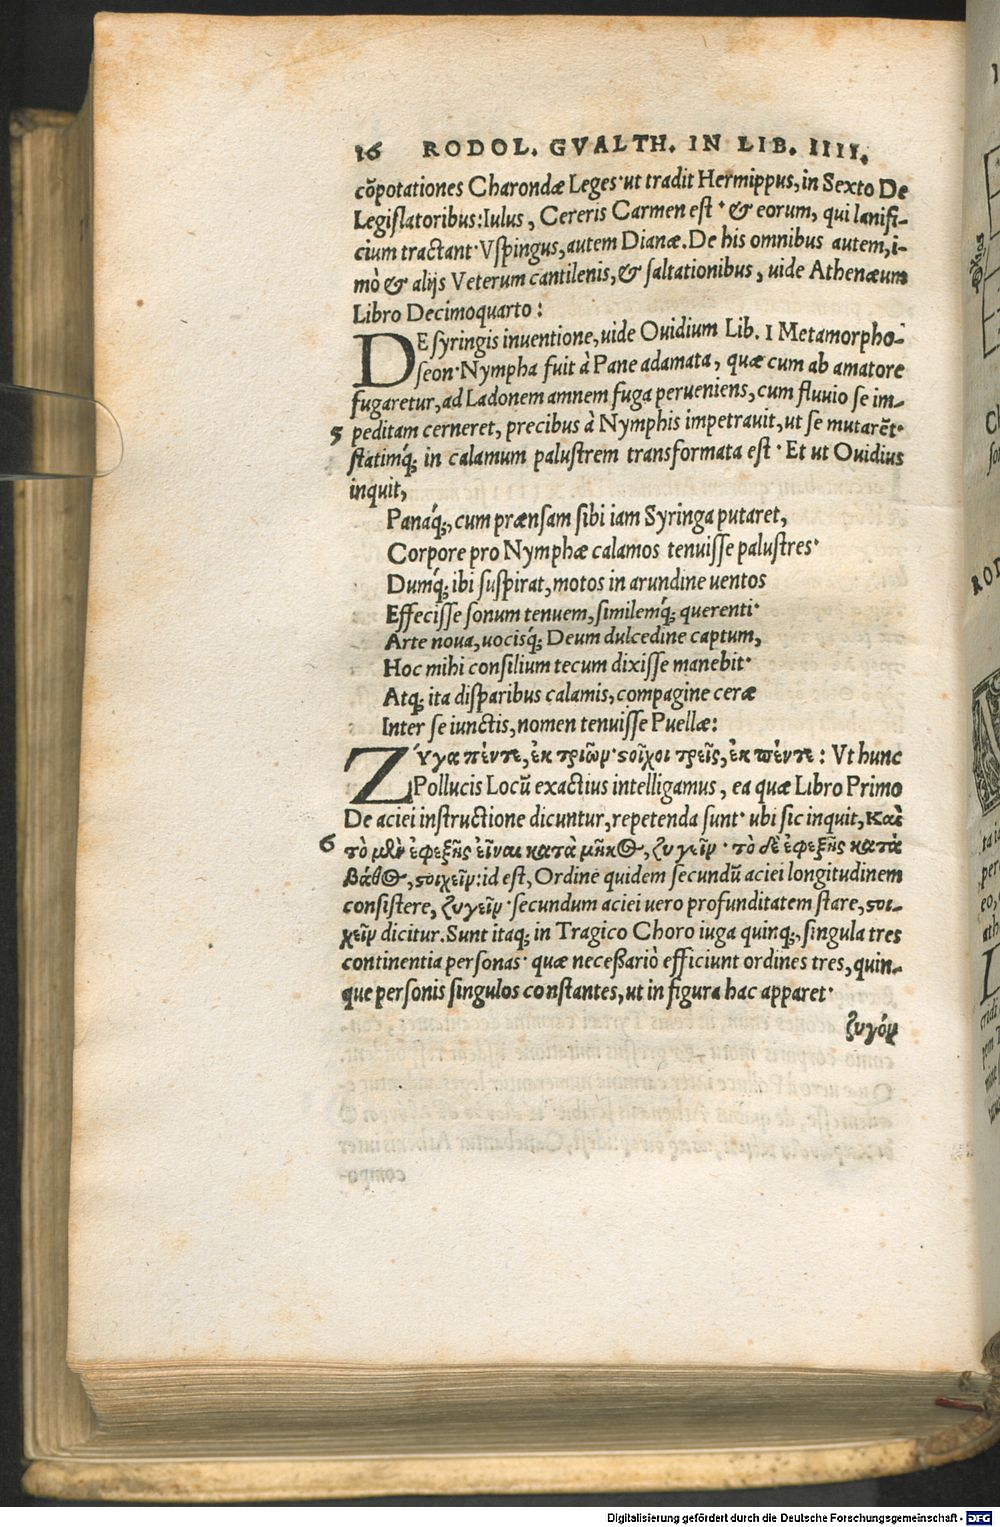 16 RODOL. GVALTH. IN LIB. IIII.
cōpotationes Charondæ Leges·ut tradit Hermippus, in Sexto De
Legislatoribus: Iulus, Cereris Carmen est· & eorum, qui lanifi-
cium tractant·Vspingus, autem Dianæ. De his omnibus autem, i-
mò & alijs Veterum cantilenis, & saltationibus, uide Athenæum
Libro Decimoquarto:
DE syringis inuentione, uide Ouidium Lib. I Metamorpho-
seon·Nympha fuit à Pane adamata, quæ cum ab amatore
fugaretur, ad Ladonem amnem fuga perueniens, cum fluuio se im-
5 peditam cerneret, precibus à Nymphis impetrauit, ut se mutarēt·
statimq; in calamum palustrem transformata est· Et ut Ouidius
inquit,
Panaq;, cum prænsam sibi iam Syringa putaret,
Corpore pro Nymphæ calamos tenuisse palustres·
Dumq; ibi suspirat, motos in arundine uentos
Effecisse sonum tenuem, similemq; querenti·
Arte noua, uocisq; Deum dulcedine captum,
Hoc mihi consilium tecum dixisse manebit·
Atq; ita disparibus calamis, compagine ceræ
Inter se iunctis, nomen tenuisse Puellæ:
Ζύγα πέντε, ἐκ τριῶν· ϛοῖχοι τρεῖς, ἐκ πέντε: Vt hunc
Pollucis Locū exactius intelligamus, ea quæ Libro Primo
De aciei instructione dicuntur, repetenda sunt· ubi sic inquit, Καὶ
6 τὸ μὲν ἐφεξῆς εἶναι κατὰ μῆκΘ, ζυγεῖν· τὸ δὲ ἐφεξῆς κατὰ
βάθΘ, ϛοιχεῖν: id est, Ordine quidem secundū aciei longitudinem
consistere, ζυγεῖν·secundum aciei uero profunditatem stare, ϛοι-
χεῖν dicitur. Sunt itaq; in Tragico Choro iuga quinq;, singula tres
continentia personas· quæ necessariò efficiunt ordines tres, quin-
que personis singulos constantes, ut in figura hac apparet·
ζυγόν
Digitalisierung gefördert durch die Deutsche Forschungsgemeinschaft - DFG